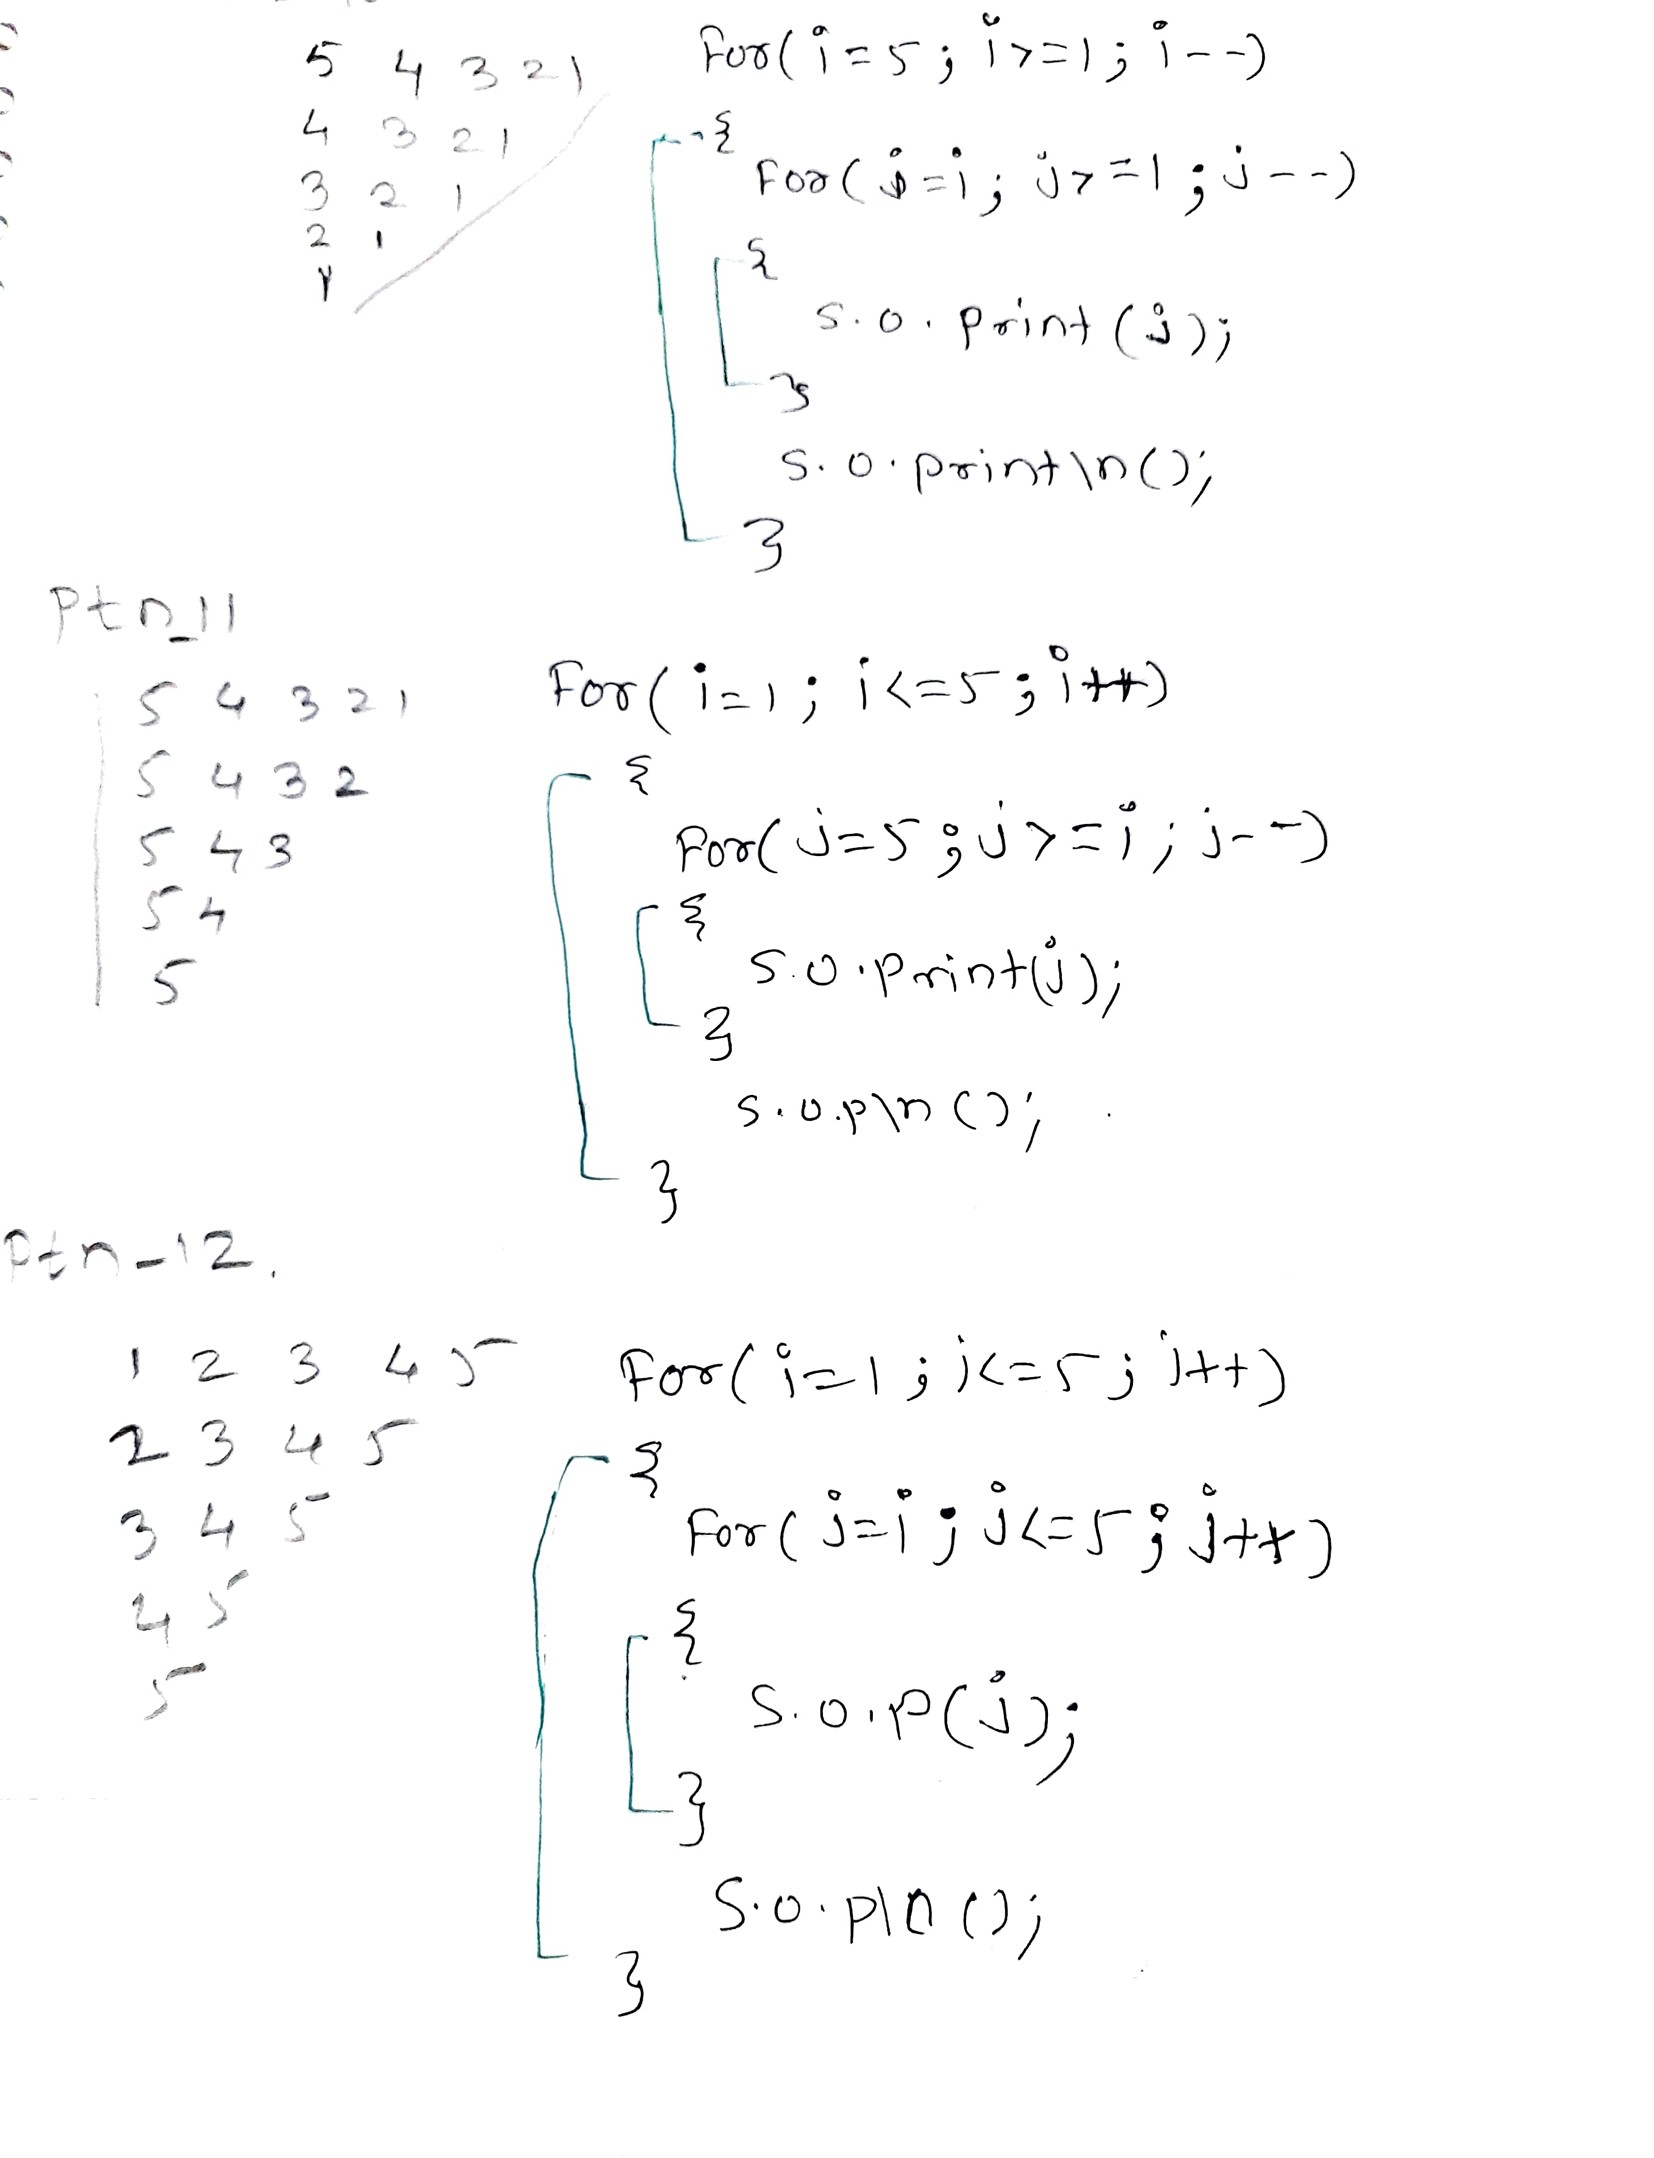 5 4 3 2 1
4 3 2 1
3 2 1
2 1
1
For(i=5; i>=1; i--)
{
For(j=i; j>=1; j--)
{
S.O.print(j);
}
S.O.println();
}
Ptn_11
5 4 3 2 1
5 4 3 2
5 4 3
5 4
5
For(i=1; i<=5; i++)
{
For(j=5; j>=i; j--)
{
S.O.print(j);
}
S.O.pln();
}
Ptn-12.
1 2 3 4 5
2 3 4 5
3 4 5
4 5
5
For(i=1; i<=5; i++)
{
For(j=i; j<=5; j++)
{
S.O.P(j);
}
S.O.pln();
}